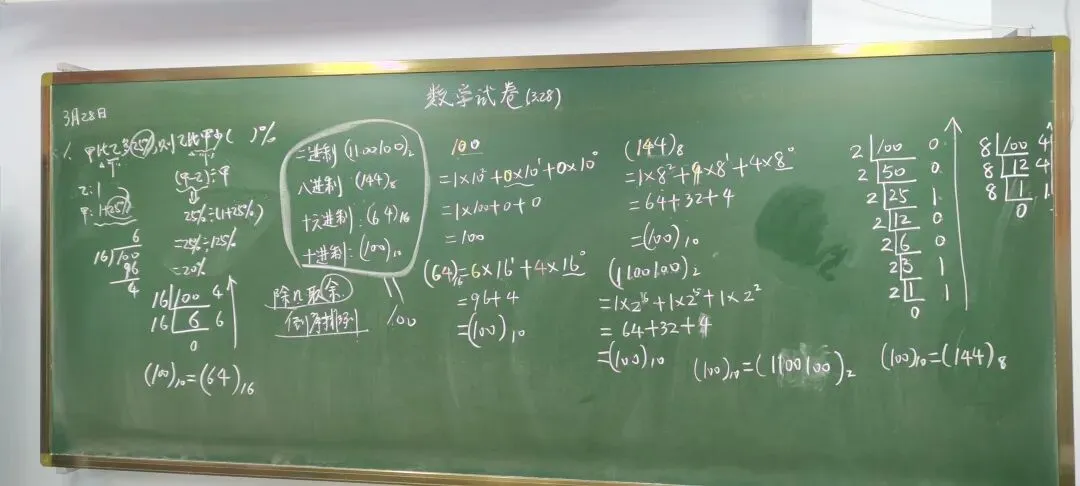 数学试卷(3.28)
3月28日
1. 甲比乙多25%,则乙比甲少( )%
(甲-乙)÷甲
乙:1
甲:1+25%
25%÷(1+25%)
=25%÷125%
=20%
6
16 100
96
4
16 100 4
16 6 6
0
(100)₁₀=(64)₁₆
二进制 (1100100)₂
八进制 (144)₈
十六进制:(64)₁₆
十进制:(100)₁₀
100
除几取余
倒序排列
100
=1×10²+0×10¹+0×10⁰
=1×100+0+0
=100
(64)₁₆=6×16¹+4×16⁰
=96+4
=(100)₁₀
(144)₈
=1×8²+4×8¹+4×8⁰
=64+32+4
=(100)₁₀
(1100100)₂
=1×2⁶+1×2⁵+1×2²
=64+32+4
=(100)₁₀
(100)₁₀=(1100100)₂
2 100 0
2 50 0
2 25 1
2 12 0
2 6 0
2 3 1
2 1 1
0
8 100 4
8 12 4
8 1 1
0
(100)₁₀=(144)₈